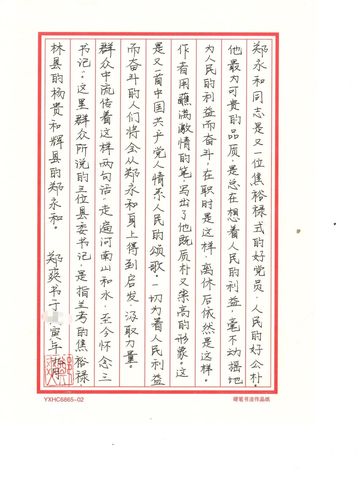 郑永和同志是又一位焦裕禄式的好党员,人民的好公朴。
他最为可贵的品质,是总在想着人民的利益,毫不动摇地
为人民的利益而奋斗,在职时是这样,离休后依然是这样。
作者用蘸满激情的笔,写出了他既质朴又崇高的形象。这
是又一首中国共产党人情系人民的颂歌。一切为着人民利益
而奋斗的人们将会从郑永和身上得到启发,汲取力量。
群众中流传着这样两句话,走遍河南山和水,至今怀念三
书记。这里群众所说的三位县委书记,是指兰考的焦裕禄、
林县的杨贵和辉县的郑永和。
郑爽书于 寅年
YXHC6865-02
硬笔书法作品纸